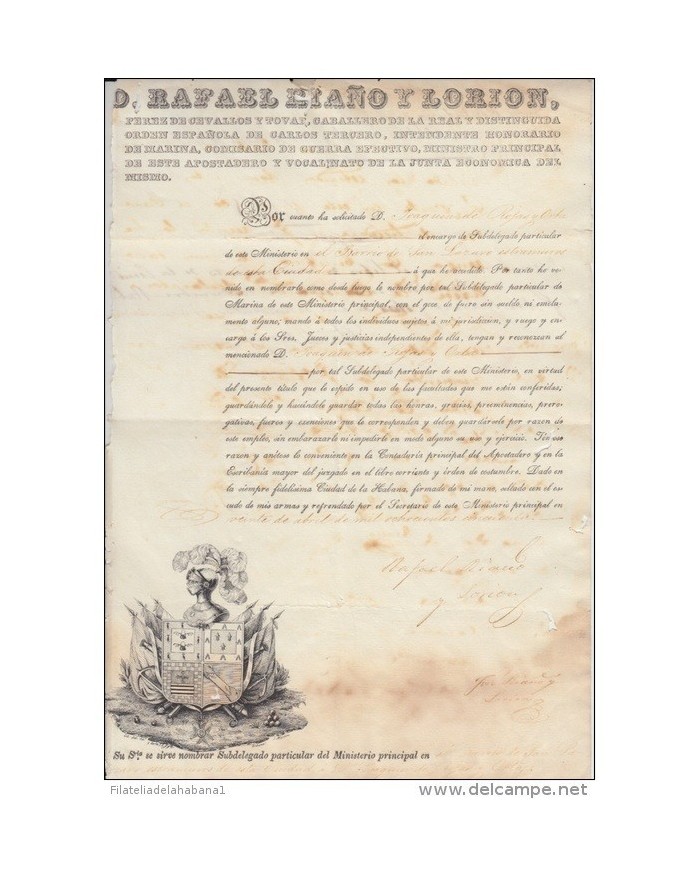 D. RAFAEL LIAÑO Y LORION,
PEREZ DE CEVALLOS Y TOVAR, CABALLERO DE LA REAL Y DISTINGUIDA
ORDEN ESPAÑOLA DE CARLOS TERCERO, INTENDENTE HONORARIO
DE MARINA, COMISARIO DE GUERRA EFECTIVO, MINISTRO PRINCIPAL
DE ESTE APOSTADERO Y VOCAL NATO DE LA JUNTA ECONOMICA DEL
MISMO.
Por cuanto ha solicitado D. Joaquin de Rojas y
el encargo de Subdelegado particular
de este Ministerio en el Barrio de San Lazaro extramuros
de esta Ciudad á que he accedido. Por tanto he ve-
nido en nombrarle como desde luego le nombro por tal Subdelegado particular de
Marina de este Ministerio principal, con el goce de fuero sin sueldo ni emolu-
mento alguno, mando á todos los individuos sujetos á mi jurisdiccion, y ruego y en-
cargo á los Sres. Jueces y justicias independientes de ella, tengan y reconozcan al
mencionado D. Joaquin de Rojas y
por tal Subdelegado particular de este Ministerio, en virtud
del presente título que le espido en uso de las facultades que me están conferidas;
guardándole y haciéndole guardar todas las honras, gracias, preeminencias, prero-
gativas, fueros y esenciones que le corresponden y deben guardársele por razon de
este empleo, sin embarazarle ni impedirle en modo alguno su uso y ejercicio. Tóme
razon y anótese lo conveniente en la Contaduría principal del Apostadero y en la
Escribanía mayor del juzgado en el libro corriente y órden de costumbre. Dado en
la siempre fidelísima Ciudad de la Habana, firmado de mi mano, sellado con el es-
cudo de mis armas y refrendado por el Secretario de este Ministerio principal en
veinte de abril de mil ochocientos
Rafael Liaño
y Lorion
Su Sria se sirve nombrar Subdelegado particular del Ministerio principal en
extramuros de esta Ciudad
Filateliadelahabana1
delcampe.net